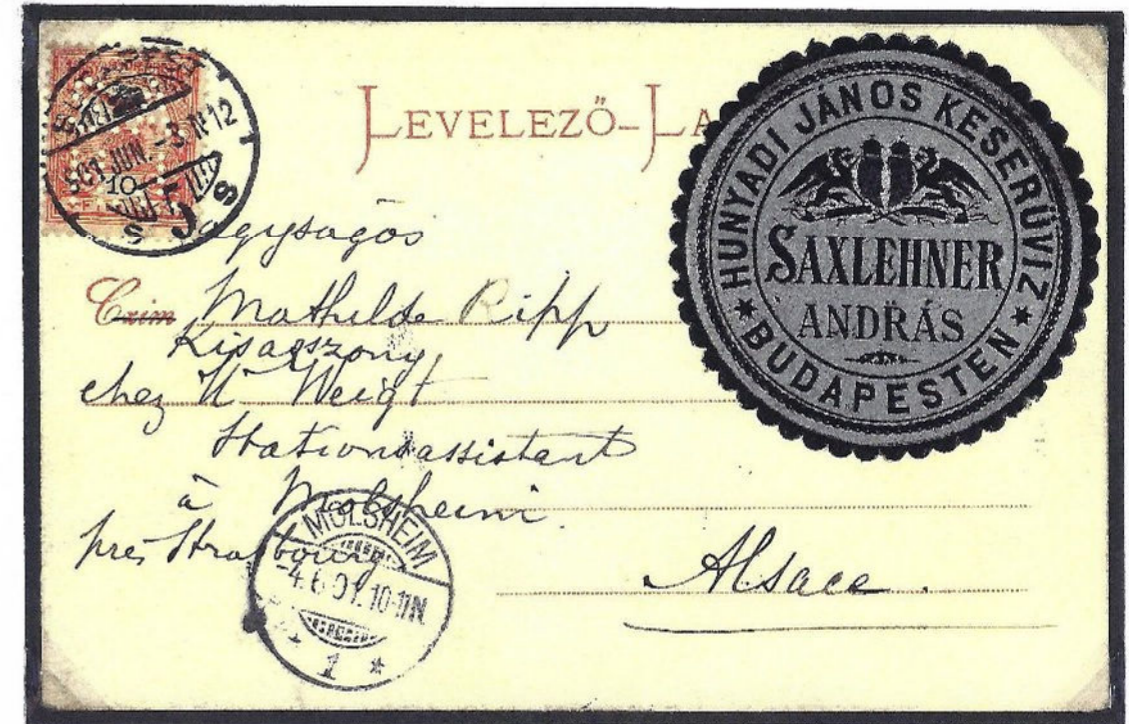 LEVELEZŐ-LA
HUNYADI JÁNOS KESERŰVIZ
SAXLEHNER
ANDRÁS
* BUDAPESTEN *
901 JUN. -3. N12
10
Nagyságos
Czim Mathilde Ripp
Kisasszony
chez Mr Weigt
Stationsassistant
à Molsheim.
près Strasbourg
Alsace.
MOLSHEIM
-4.6.01.10-11N.
* 1 *